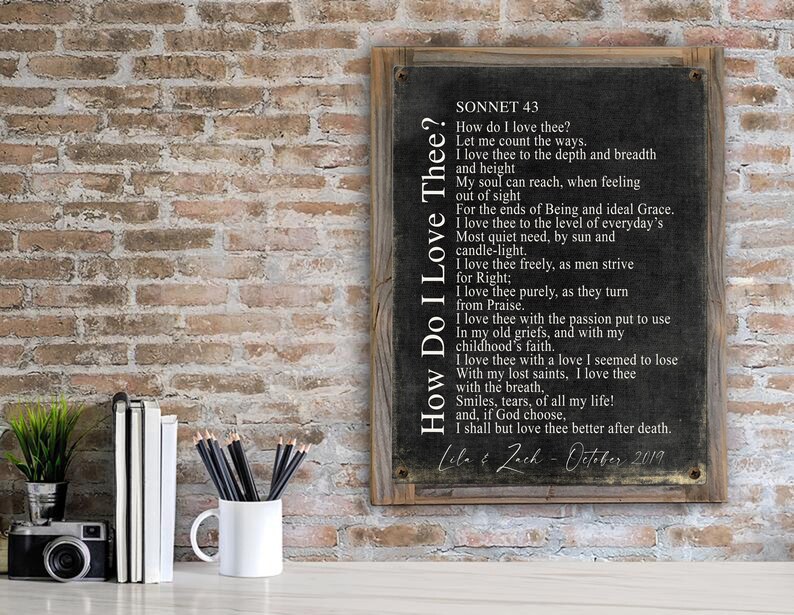 How Do I Love Thee?
SONNET 43
How do I love thee?
Let me count the ways.
I love thee to the depth and breadth
and height
My soul can reach, when feeling
out of sight
For the ends of Being and ideal Grace.
I love thee to the level of everyday's
Most quiet need, by sun and
candle-light.
I love thee freely, as men strive
for Right;
I love thee purely, as they turn
from Praise.
I love thee with the passion put to use
In my old griefs, and with my
childhood's faith.
I love thee with a love I seemed to lose
With my lost saints, I love thee
with the breath,
Smiles, tears, of all my life!
and, if God choose,
I shall but love thee better after death.
Lila & Zach - October 2019